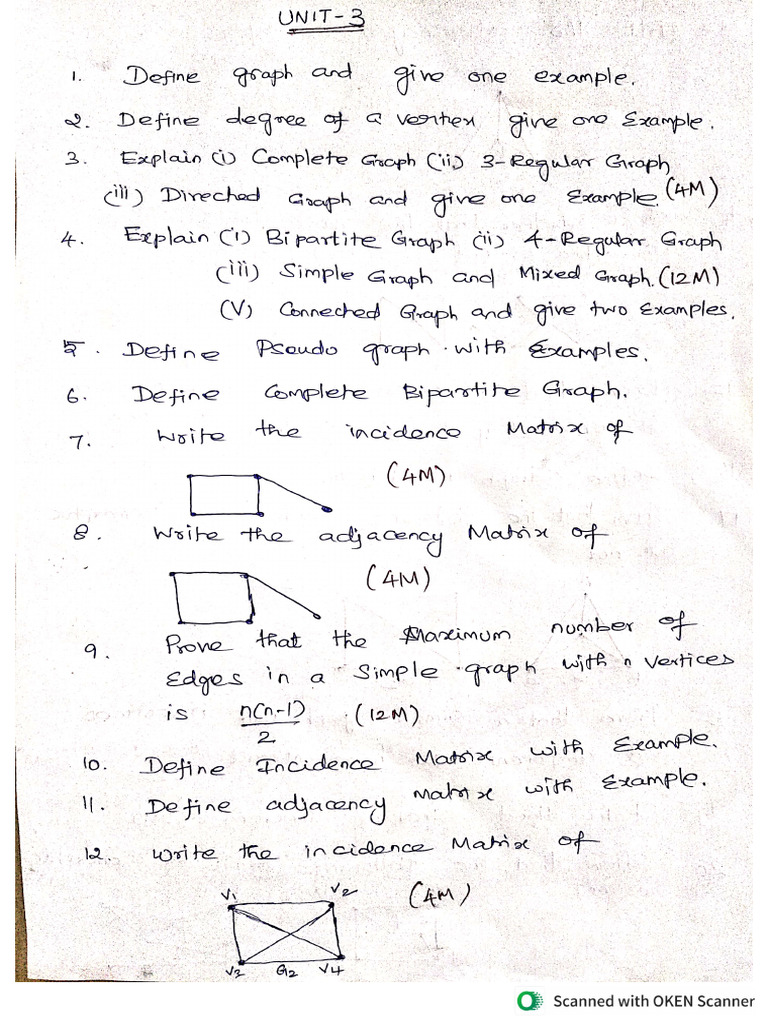 UNIT-3
1. Define graph and give one example.
2. Define degree of a vertex give one Example.
3. Explain (i) Complete Graph (ii) 3-Regular Graph
(iii) Direched Graph and give one Example. (4M)
4. Explain (i) Bipartite Graph (ii) 4-Regular Graph
(iii) Simple Graph and Mixed Graph. (12M)
(V) Conneched Graph and give two Examples.
5. Define Pseudo graph with Examples.
6. Define Complete Bipartite Graph.
7. Write the incidence Matrix of
(4M)
8. Write the adjacency Matrix of
(4M)
9. Prove that the Maximum number of
Edges in a Simple graph with n vertices
is n(n-1)/2 (12M)
10. Define Incidence Matrix with Example.
11. Define adjacency Matrix with Example.
12. Write the incidence Matrix of
V1 V2 (4M)
V3 G2 V4
Scanned with OKEN Scanner